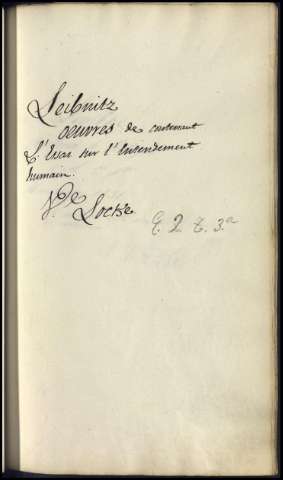 Leibnitz
oeuvres de contenant
L'Essai sur l'Entendement
humain.
V.e Locke
E. 2. t. 3.a